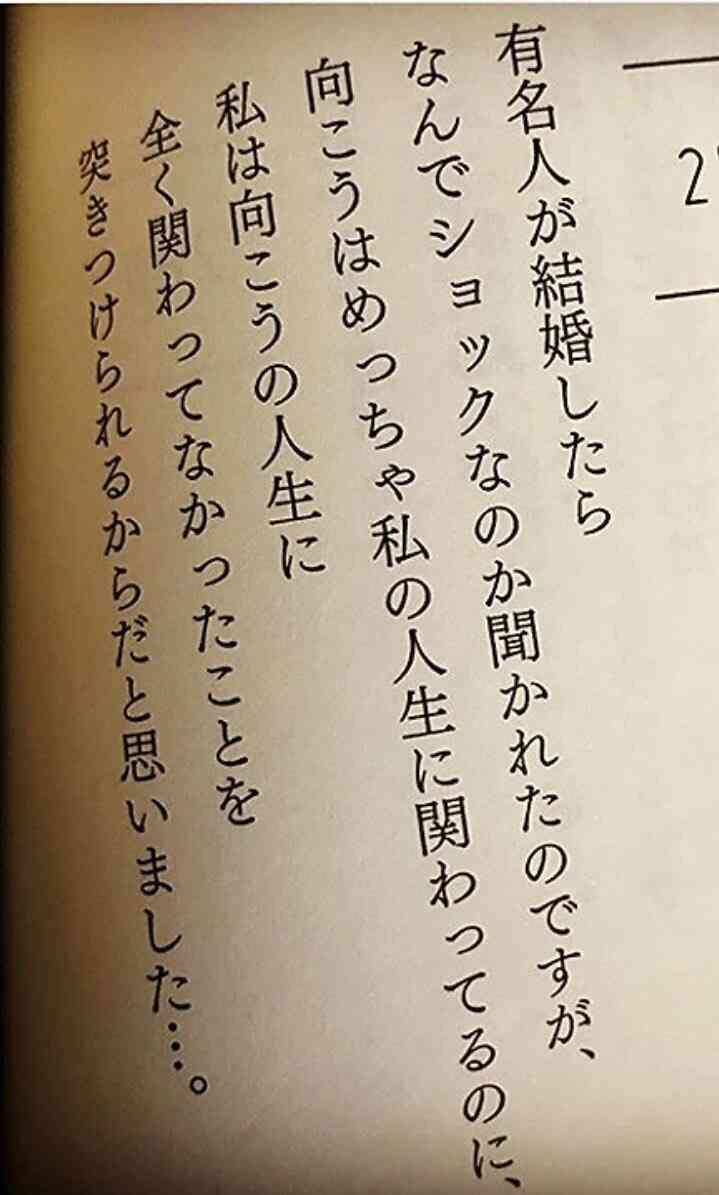 有名人が結婚したら
なんでショックなのか聞かれたのですが、
向こうはめっちゃ私の人生に関わってるのに、
私は向こうの人生に
全く関わってなかったことを
突きつけられるからだと思いました…。